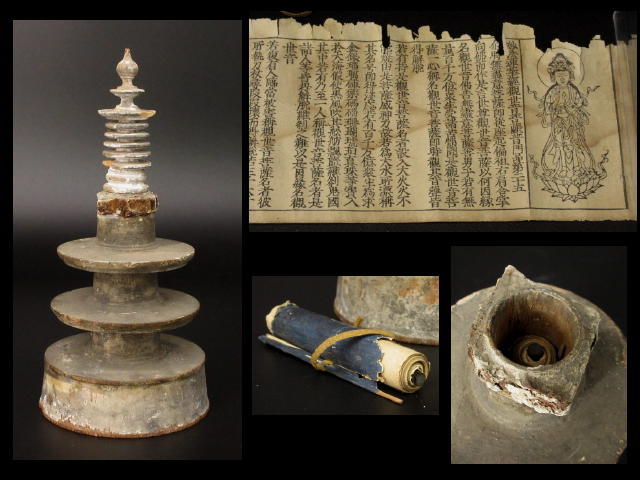 妙法蓮華經觀世音菩薩普門品第二十五
爾時無盡意菩薩即從座起偏袒右肩合掌
向佛而作是言世尊觀世音菩薩以何因緣
名觀世音佛告無盡意菩薩善男子若有無
量百千万億衆生受諸苦惱聞是觀世音菩
薩一心稱名觀世音菩薩即時觀其音聲皆
得解脫
若有持是觀世音菩薩名者設入大火火不
能燒由是菩薩威神力故若為大水所漂稱
其名号即得淺處若有百千万億衆生為求
金銀瑠璃硨磲碼碯珊瑚琥珀真珠等寶入
於大海假使黑風吹其舩舫飄墮羅刹鬼國
其中若有乃至一人稱觀世音菩薩名者是
諸人等皆得解脫羅刹之難以是因緣名觀
世音
若復有人臨當被害稱觀世音菩薩名者彼
所執刀杖尋段段壞而得解脫若三千大千